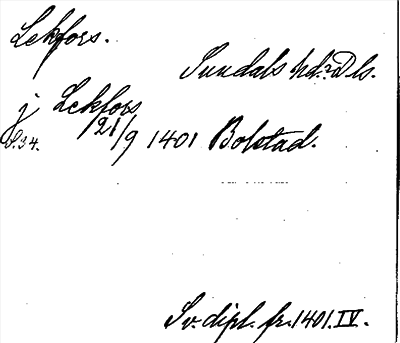 Lekfors.
Sundals hd. Dls.
j Lekfors
21/9 1401 Bolstad.
S.34.
Sv. dipl. fr. 1401. IV.